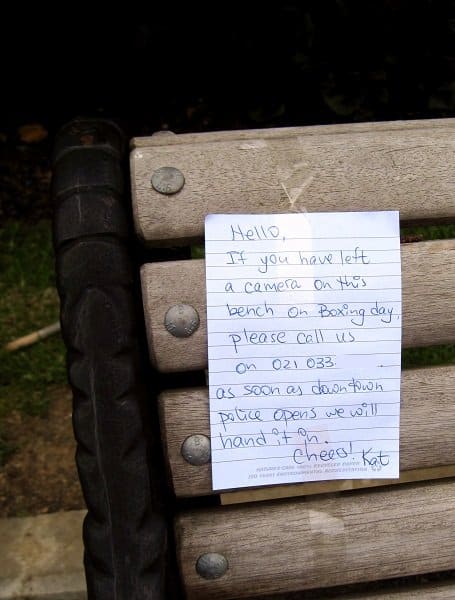 Hello,
If you have left
a camera on this
bench on Boxing day,
please call us
on 021 033
as soon as downtown
police opens we will
hand it in.
Cheers! Kat